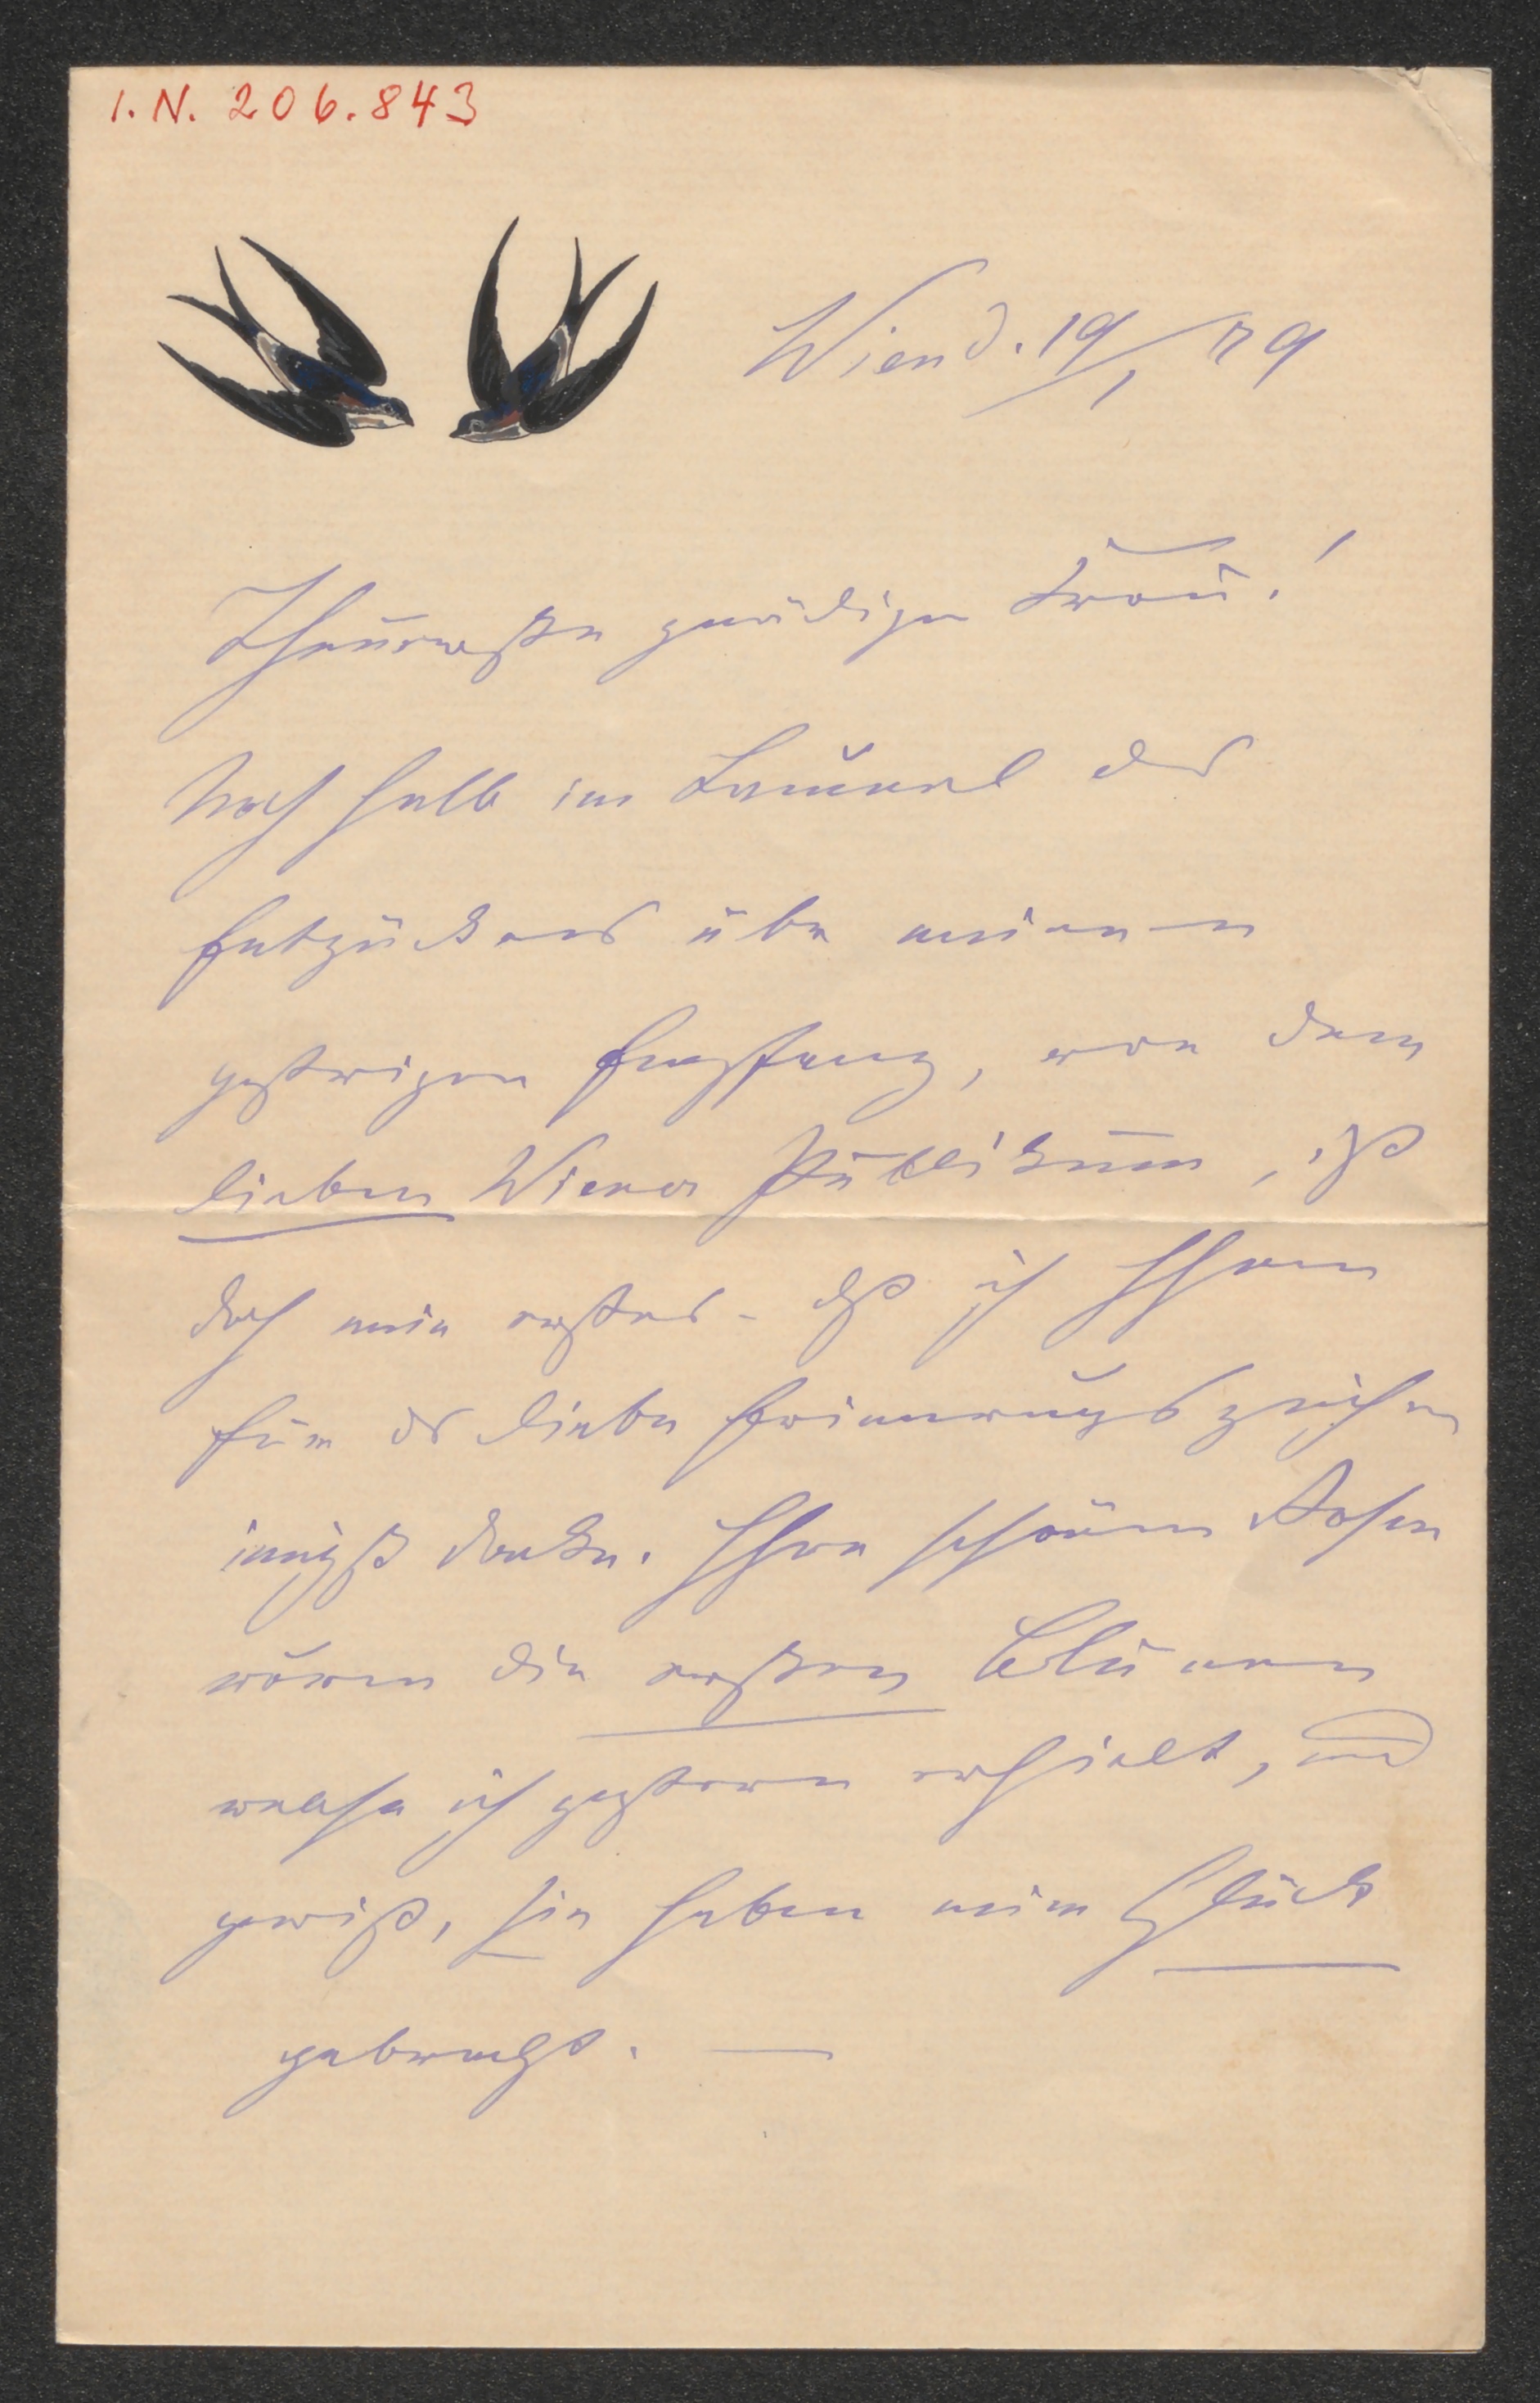 I.N. 206.843
Wien d. 19/1 79
Theuerste gnädige Frau!
Noch halb im Taumel des
Entzückens über meinen
gestrigen Empfang, von dem
lieben Wiener Publikum, ist
doch mein erstes - daß ich Ihnen
für das liebe Erinnerungszeichen
innigst danke. Ihre schönen Rosen
waren die ersten Blumen
welche ich gestern erhielt, und
gewiß, sie haben mir Glück
gebracht. —